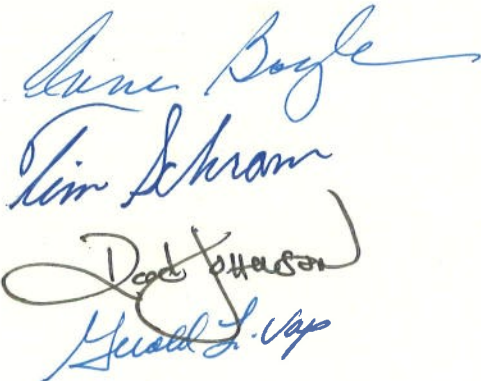 Anne Boyle
Tim Schram
Rod Johnson
Gerald L. Vap